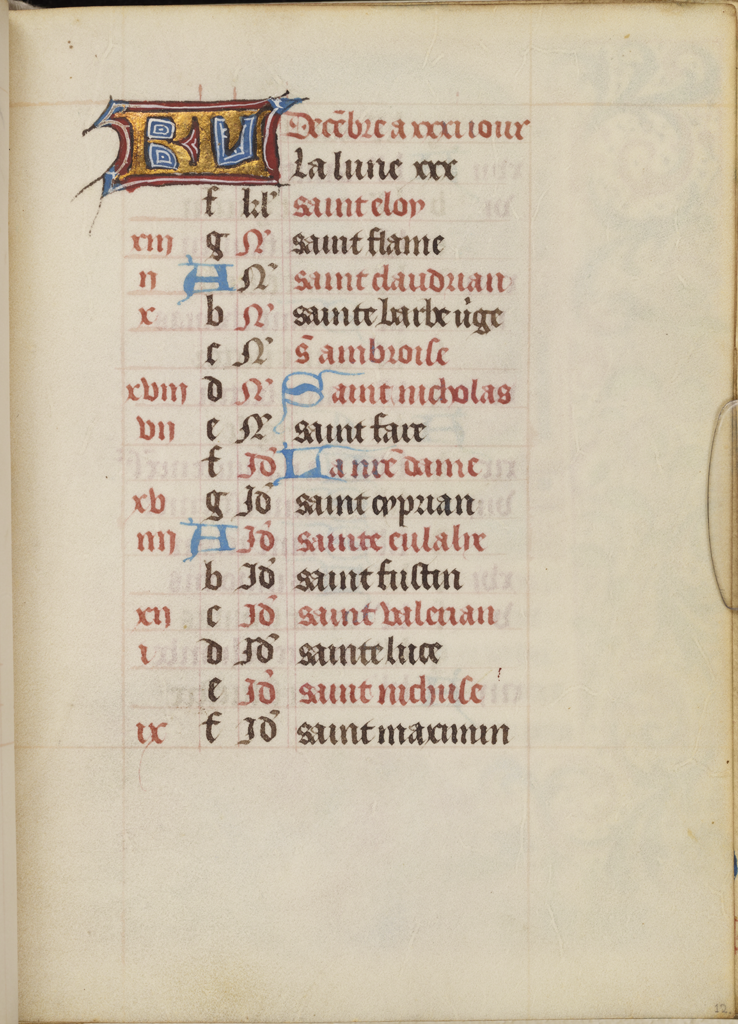 KL Decēbre a xxxi iour
La lune xxx
f kl' saint eloy
xiii g N' saint flame
ii A N' saint claudrian
x b N' sainte barbe v'ge
c N' s̄ ambroise
xviii d N' Saint nicholas
vii e N' saint fare
f Id' La nr̄e dame
xv g Id' saint cyprian
iiii A Id' sainte eulalie
b Id' saint fustin
xii c Id' saint valerian
i d Id' sainte luce
e Id' saint nichuse
ix f Id' saint maximin
12